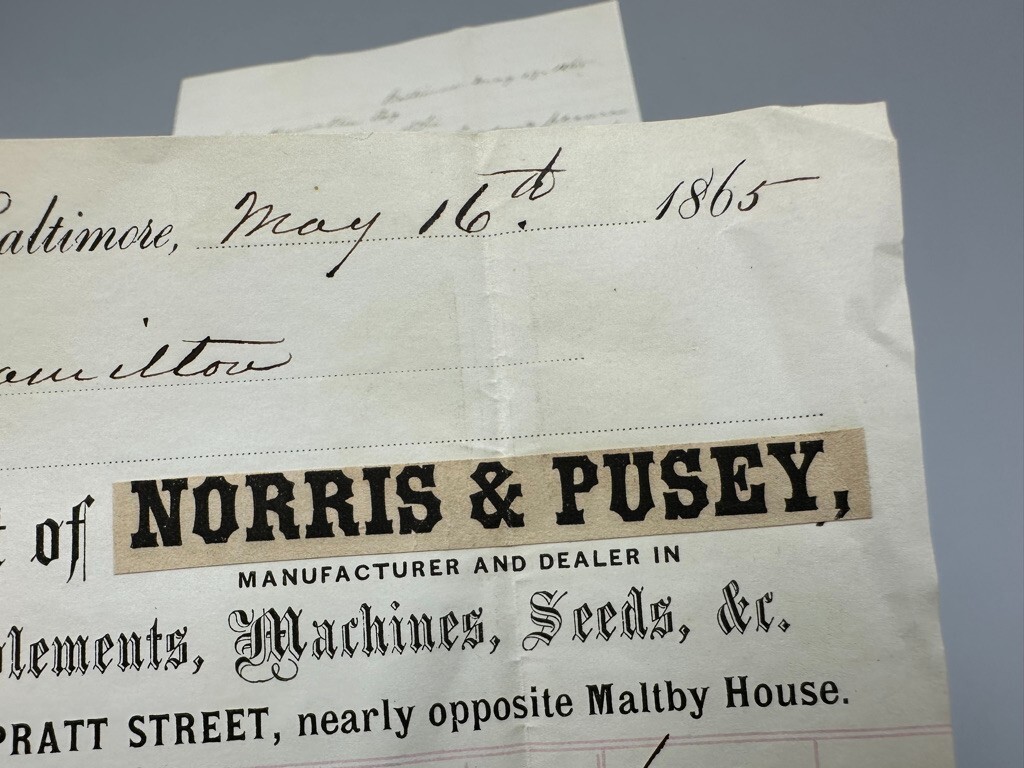 Baltimore, May 16th 1865
Hamilton
of NORRIS & PUSEY,
MANUFACTURER AND DEALER IN
plements, Machines, Seeds, &c.
PRATT STREET, nearly opposite Maltby House.